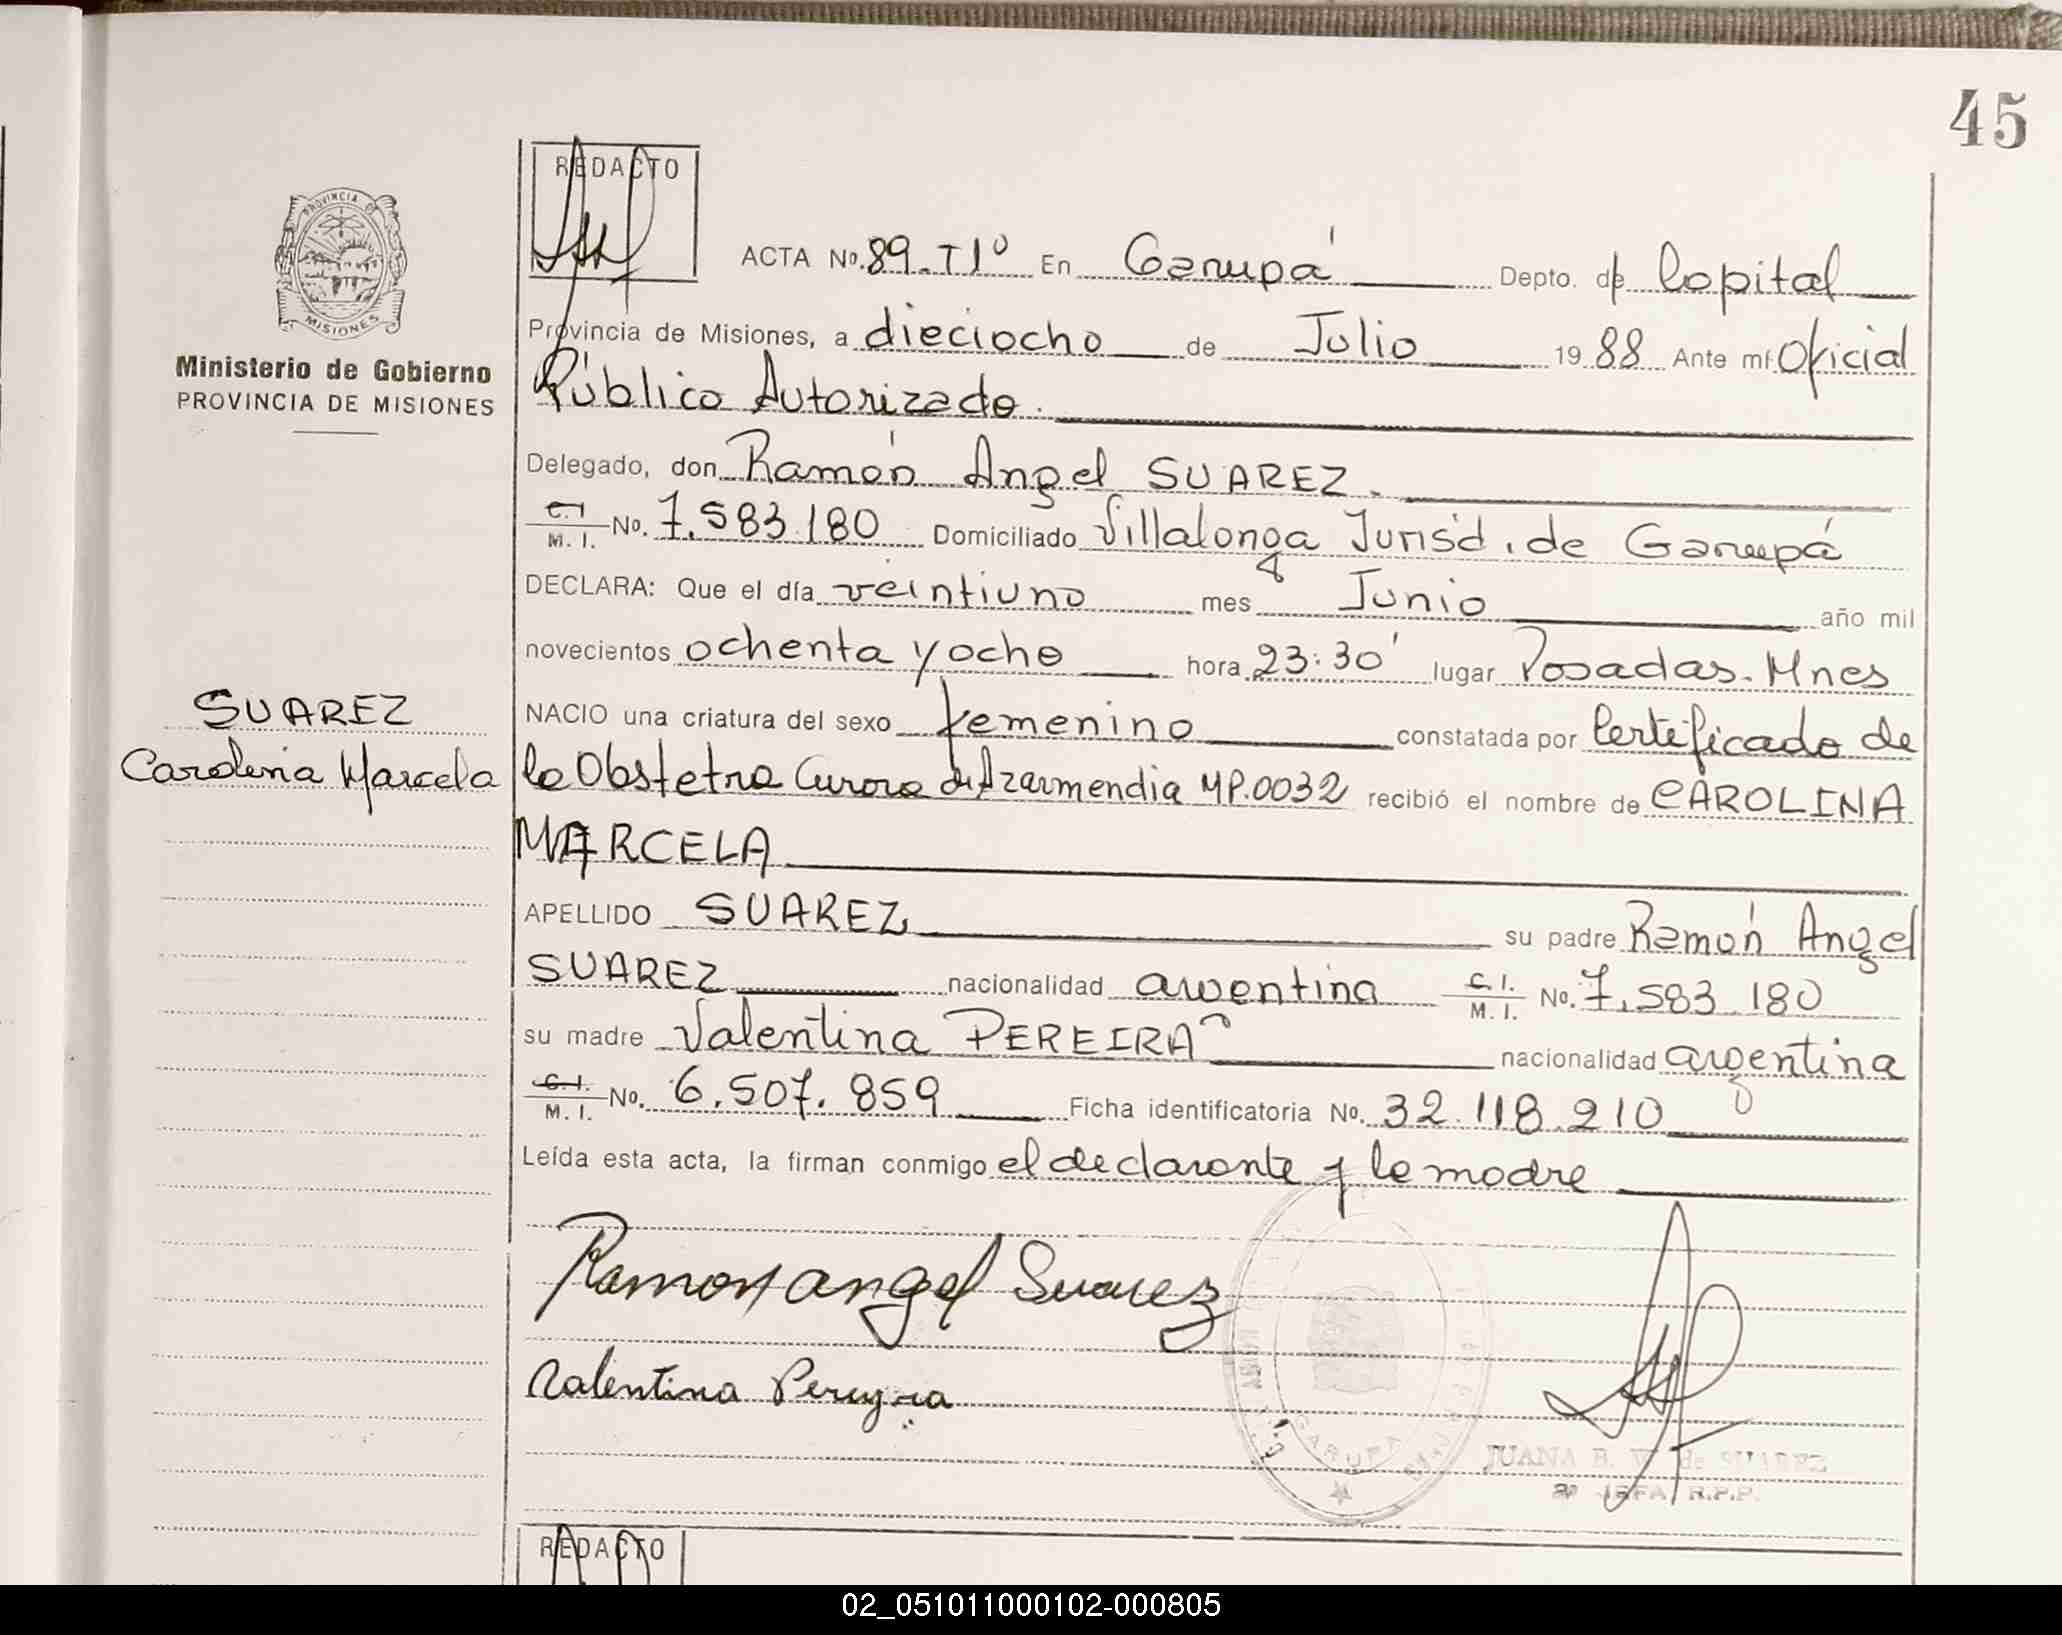 45
REDACTO
PROVINCIA DE
MISIONES
ACTA No. 89-TIº En Garupá Depto. de Capital
Ministerio de Gobierno
PROVINCIA DE MISIONES
Provincia de Misiones, a dieciocho de Julio 1988 Ante mí Oficial
Público Autorizado.
Delegado, don Ramón Angel SUAREZ.
C.I
M. I. No. 7.583.180 Domiciliado Villalonga Jurisd. de Garupá
DECLARA: Que el día veintiuno mes Junio año mil
novecientos ochenta y ocho hora 23:30' lugar Posadas. Mnes
SUAREZ
Carolina Marcela
NACIO una criatura del sexo femenino constatada por Certificado de
la Obstetra Aurora de Azarmendia MP.0032 recibió el nombre de CAROLINA
MARCELA
APELLIDO SUAREZ su padre Ramón Angel
SUAREZ nacionalidad argentina C.I.
M. I. No. 7.583.180
su madre Valentina PEREIRA nacionalidad argentina
C.I.
M. I. No. 6.507.859 Ficha identificatoria No. 32.118.210
Leída esta acta, la firman conmigo el declarante y la madre
Ramon angel Suarez
Valentina Pereyra
GARUPA
JUANA B. V. de SUAREZ
JEFA R.P.P.
REDACTO
02_051011000102-000805